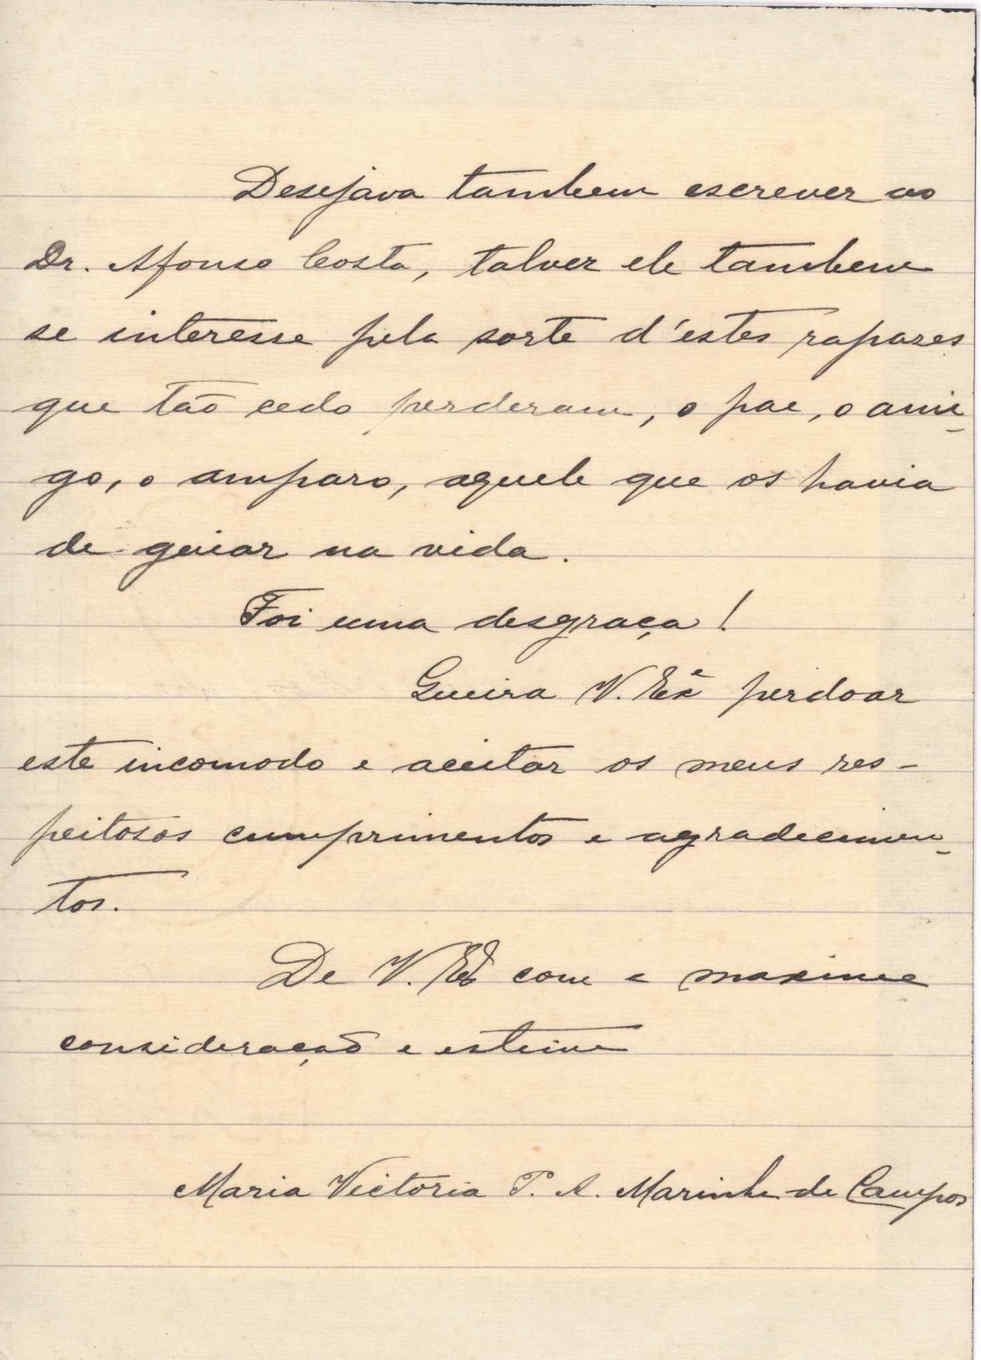 Desejava tambem escrever ao
Dr. Afonso Costa, talvez ele tambem
se interesse pela sorte d'estes rapazes
que tão cedo perderam, o pae, o ami-
go, o amparo, aquele que os havia
de guiar na vida.
Foi uma desgraça!
Queira V. Exª perdoar
este incomodo e aceitar os meus res-
peitosos cumprimentos e agradecimen-
tos.
De V. Exª com a maxima
consideração e estima
Maria Victoria P. A. Marinha de Campos